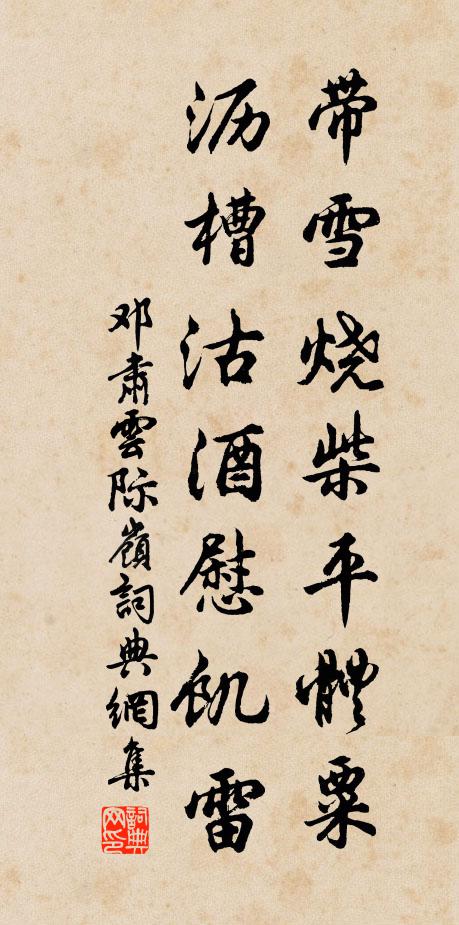 带雪烧柴平體粟
沥槽沽酒慰飢雷
邓肃雲际嶺詞典網集
詞典网印